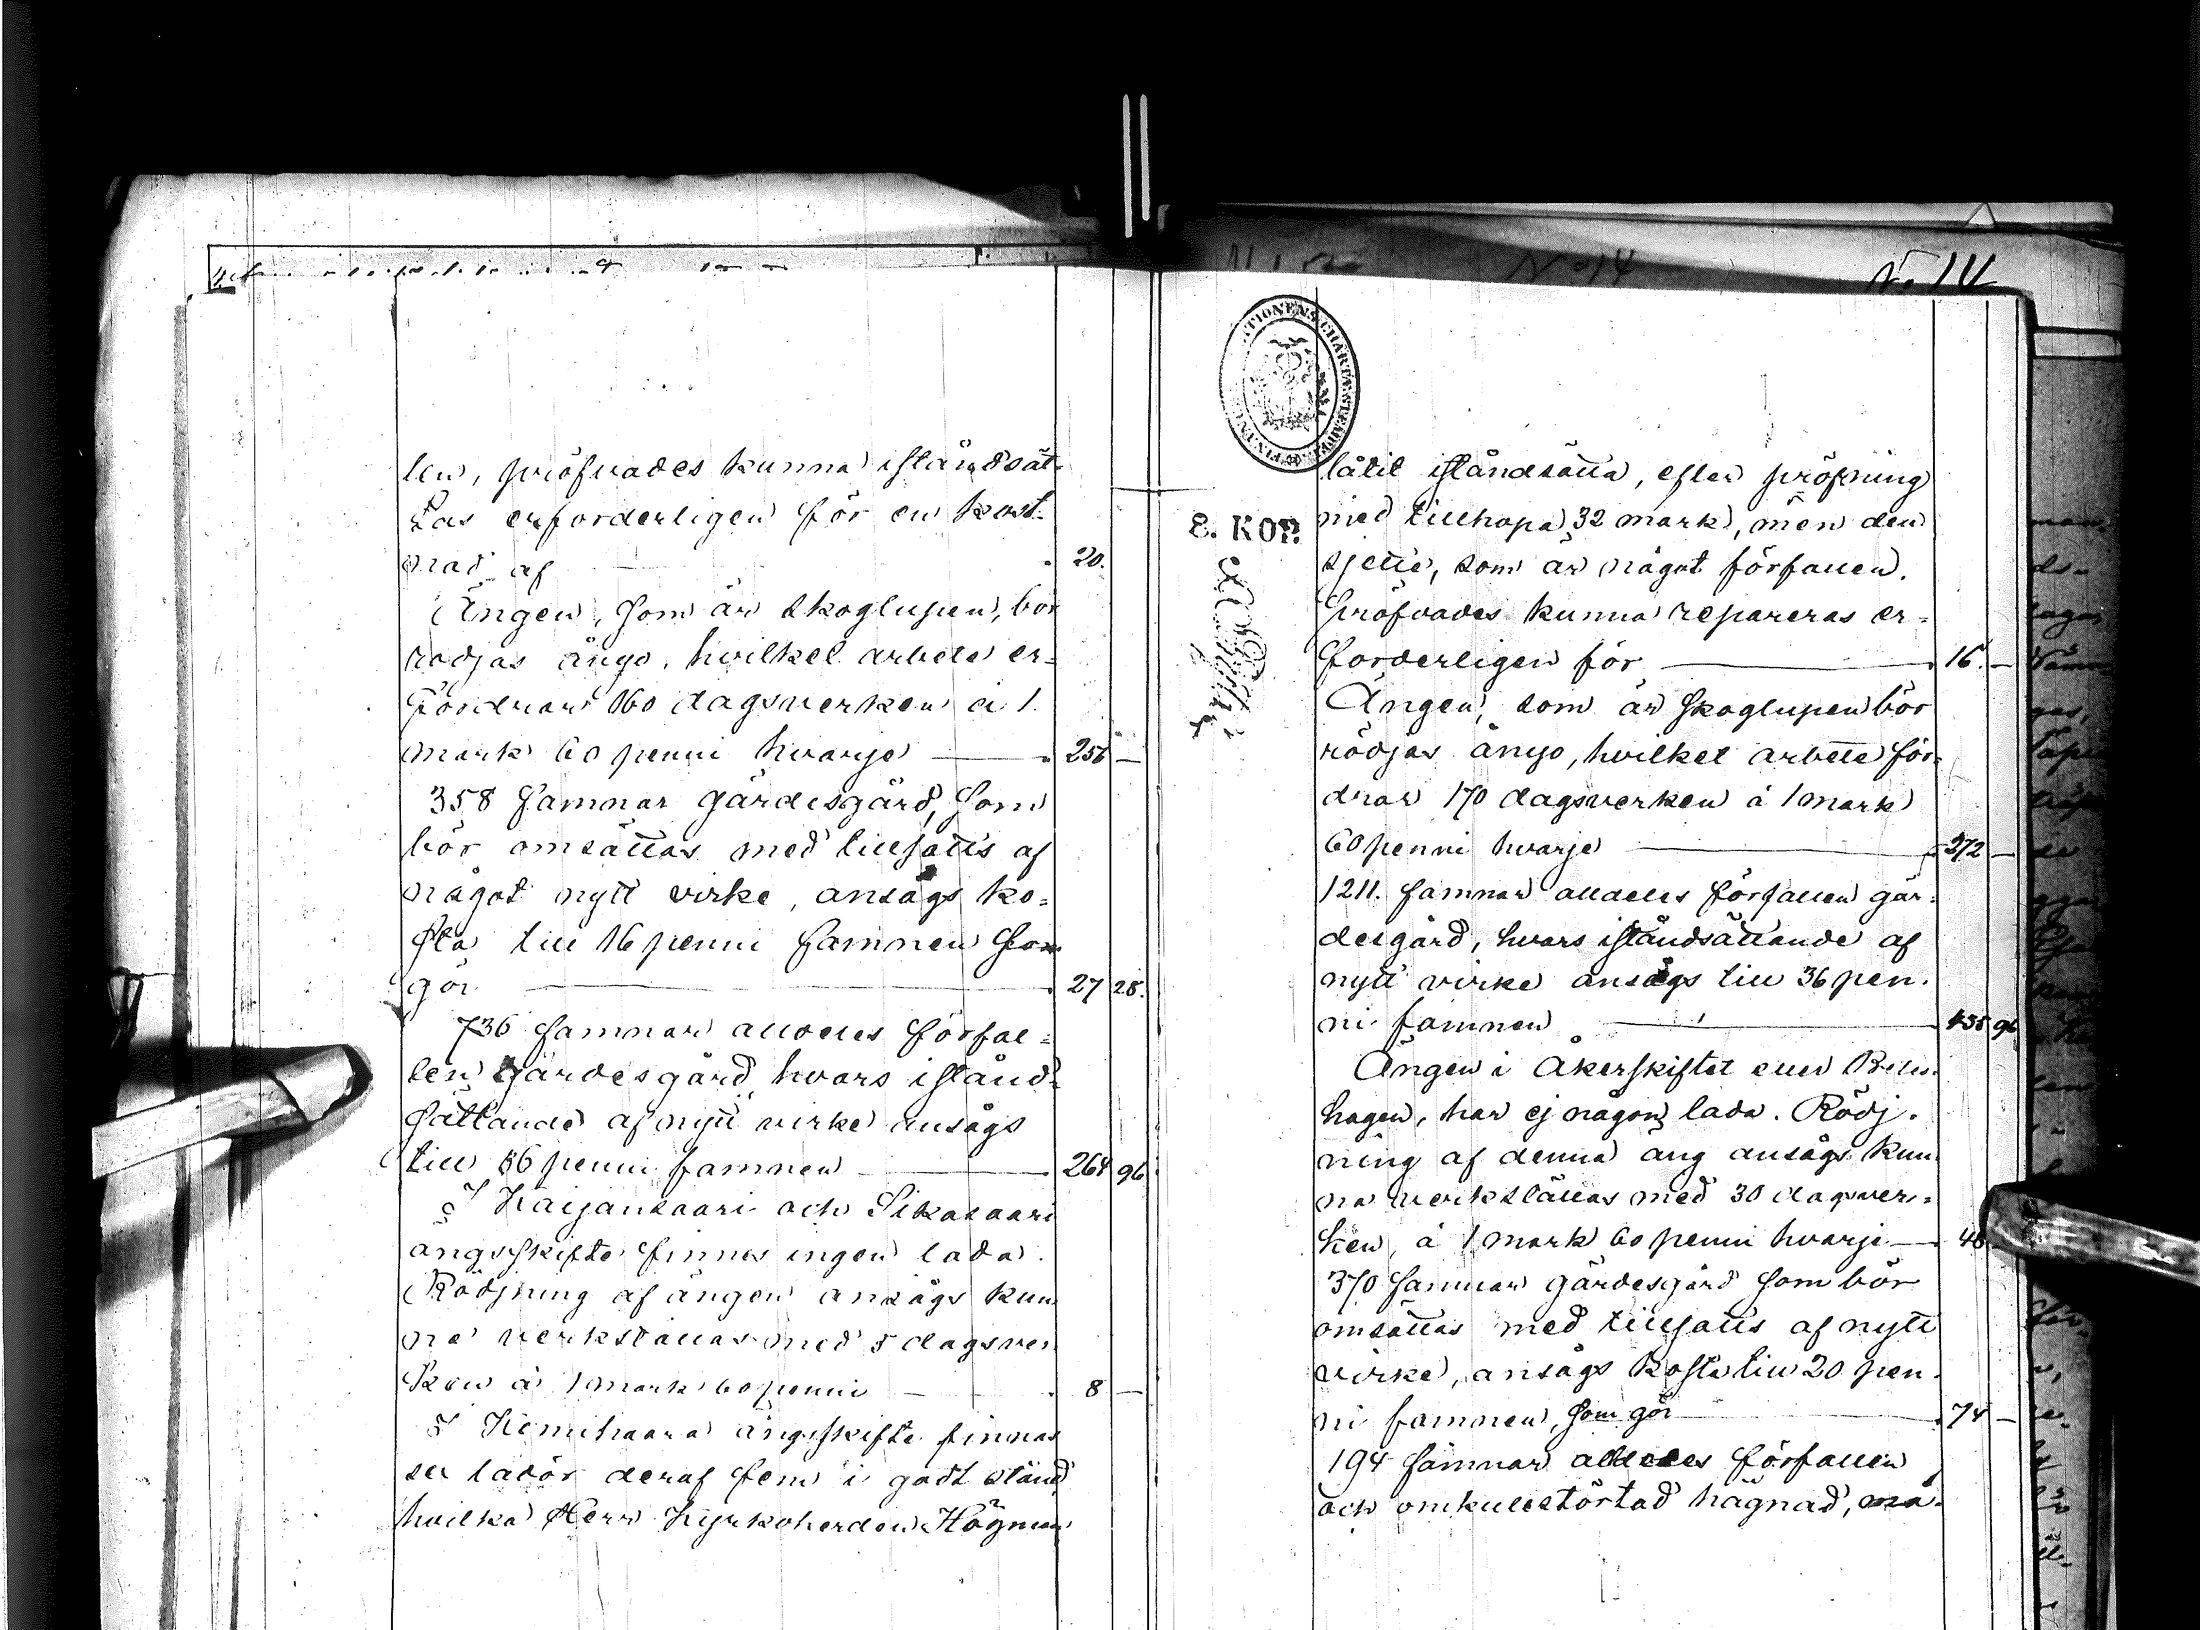 len, pröfvades kunna iståndsät-
tas erforderligen för en kost-
nad af 20.
Ängen, som är skoglupen, bör
rödjas ånyo, hvilket arbete er-
fordrar 160 dagsverken à 1
mark 60 penni hvarje 256 —
358 famnar gärdesgård, som
bör omsättas med tillsatts af
något nytt virke, ansågs ko-
sta till 16 penni famnen som
gör 27 28.
736 famnar alldeles förfal-
len gärdesgård, hvars istånd-
sättande af nytt virke ansågs
till 36 penni famnen 264 96.
I Kaijansaari och Sikasaari
ängsskifte finnes ingen lada.
Rödjning af ängen ansågs kun-
na verkställas med 5 dagsver-
ken à 1 mark 60 penni 8 —
I Kemihaara ängsskifte finnas
sex lador deraf fem i godt stånd
hvilka Herr Kyrkoherden Högman
No 14
8. KOP.
låtit iståndsätta, efter pröfning
med tillhopa 32 mark, men den
sjette, som är något förfallen.
Pröfvades kunna repareras er-
forderligen för 16. —
Ängen, som är skoglupen bör
rödjas ånyo, hvilket arbete for-
drar 170 dagsverken à 1 mark
60 penni hvarje 272 —
1211. famnar alldeles förfallen gär-
desgård, hvars iståndsättande af
nytt virke ansågs till 36 pen-
ni famnen 435 96
Ängen i Åkerskiftet eller Betes-
hagen, har ej någon lada. Rödj-
ning af denna äng ansågs kun-
na verkställas med 30 dagsver-
ken, à 1 mark 60 penni hvarje 48
370 famnar gärdesgård som bör
omsättas med tillsatts af nytt
virke, ansågs kosta till 20 pen-
ni famnen, som gör 74 —
194 famnar alldeles förfallen
och omkullstörtad hägnad, må-